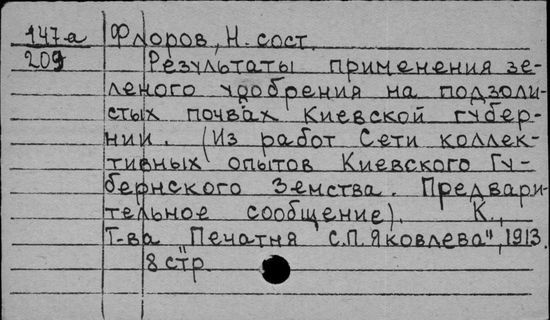 147-а Флоров, Н. сост.
209 Результаты применения зе-
леного удобрения на подзоли-
стых почвах Киевской губер-
нии. (Из работ Сети коллек-
тивных опытов Киевского Гу-
бернского Земства. Предвари-
тельное сообщение). К.,
Т-ва "Печатня С.П.Яковлева", 1913.
8 стр.